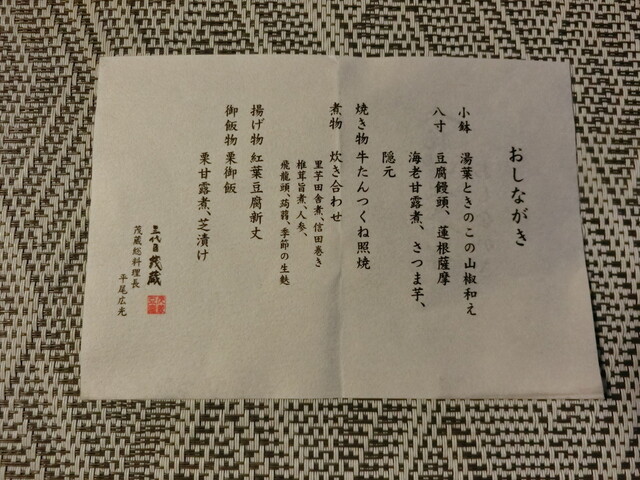 おしながき
小鉢 湯葉ときのこの山椒和え
八寸 豆腐饅頭、蓮根薩摩
海老甘露煮、さつま芋、
隠元
焼き物 牛たんつくね照焼
煮物 炊き合わせ
里芋田舎煮、信田巻き
椎茸旨煮、人参、
飛龍頭、蒟蒻、季節の生麩
揚げ物 紅葉豆腐新丈
御飯物 栗御飯
栗甘露煮、芝漬け
三代目 茂蔵
茂蔵総料理長
平尾広光